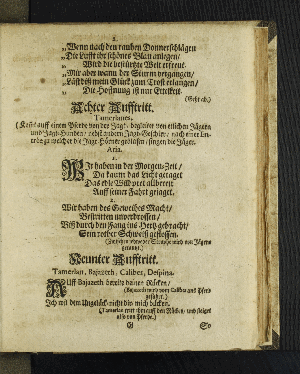 2.
„Wenn nach den rauhen Donnerschlägen
„Die Lufft ihr schönes Blau anlegen/
„Wird die bestürtzte Welt erfreut.
„Mir aber wann der Sturm vergangen/
„Läst diß mein Glück zum Trost erlangen/
„Die Hoffnung ist nur Eitelkeit.
(Geht ab.)
Achter Aufftritt.
Tamerlanes.
(Kömt auff einem Pferde von der Jagt/ begleitet von etlichen Jägern
und Jagt-Hunden/ nebst anderm Jagt-Geschirr/ nach einer
zu welcher die Jagt-Hörner geblasen/ singen die Jäger.
Aria.
1.
Wir haben in der Morgen-Zeit/
Da kaum das Licht getaget
Das edle Wildpret allbereit
Auff seiner Fahrt gejaget.
2.
Wir haben des Geweihes Macht/
Bestritten unverdrossen/
Biß durch den Fang ins Hertz gebracht/
Sein rother Schweiß geflossen.
von Jägern
getantzt.)
Neunter Aufftritt.
Tamerlan, Bajazeth, Calibes, Despina.
Auff Bajazeth bereite deinen Rücken/
(Bajazeth wird vom Calibes ans Pferd
geführet.)
Ich will dem Unglück nicht
(Tamerlan tritt ihm auff den Rücken/ und steiget
also vom Pferde.)
G
So